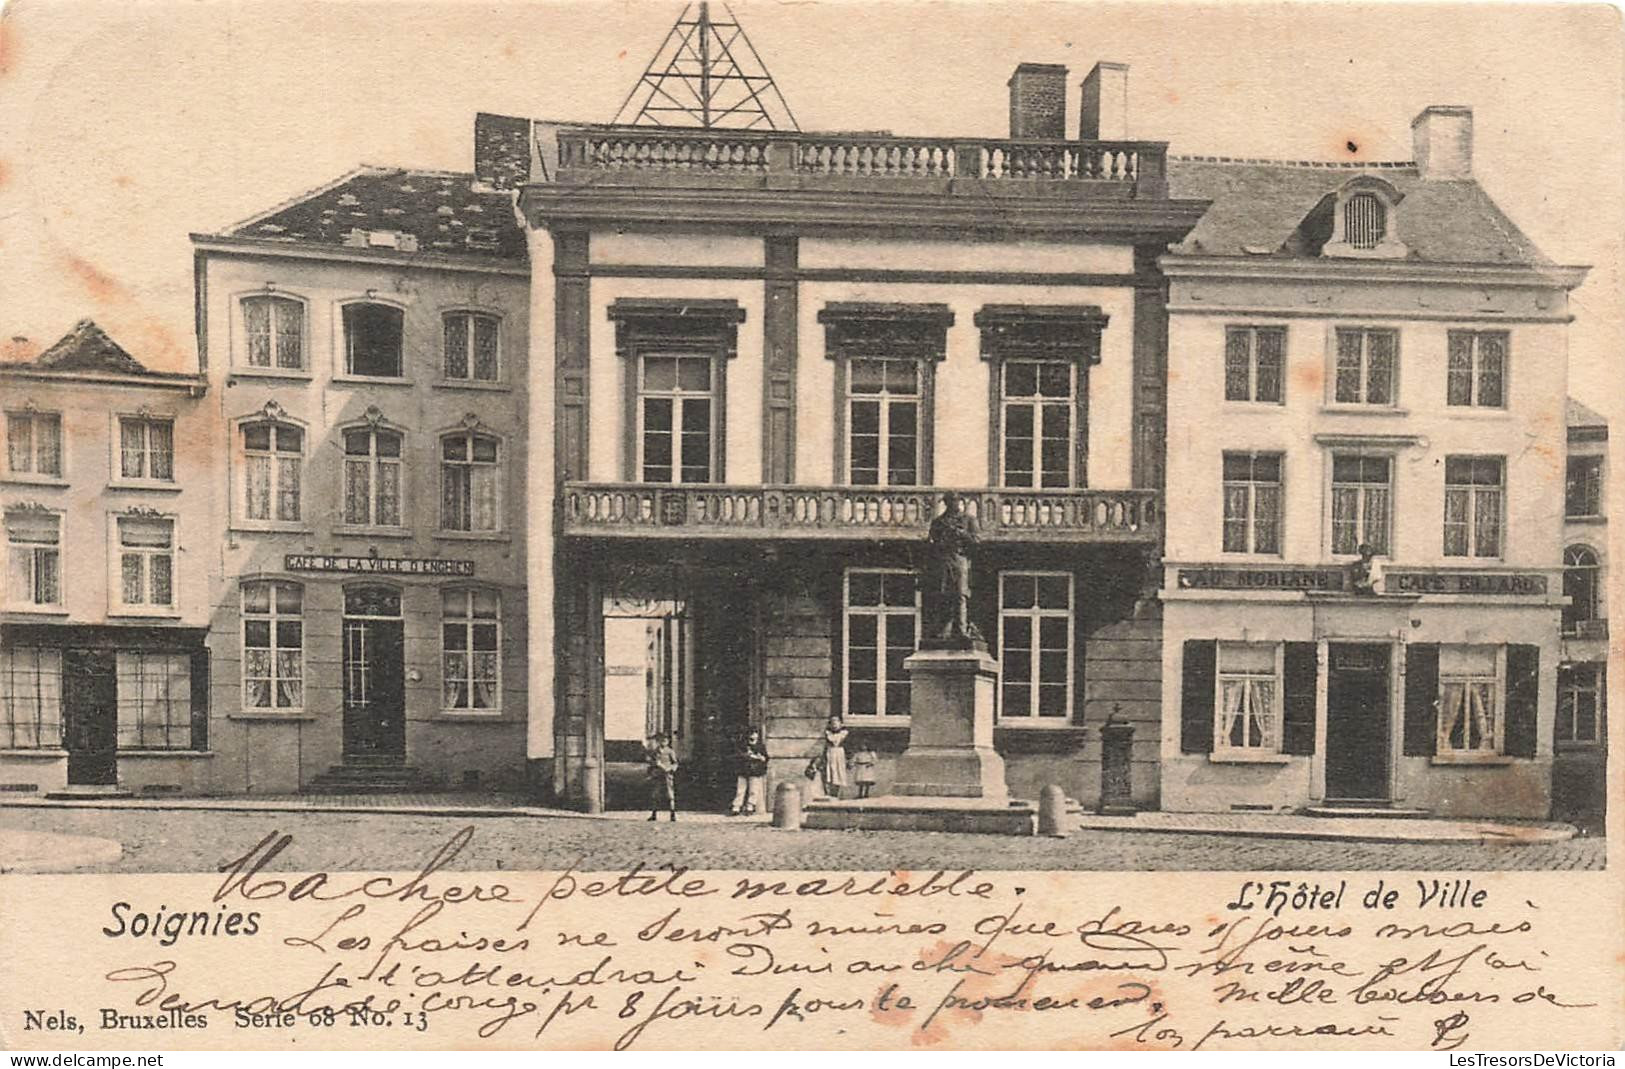 CAFÉ DE LA VILLE D'ENGHIEN
AU MORIANE
CAFÉ BILLARD
Soignies
L'Hôtel de Ville
Ma chère petite marielle.
Les fraises ne seront mûres que dans 15 jours mais
je t'attendrai Dimanche quand même et j'ai
demandé congé pr 8 jours pour te promener.
Mille baisers de
ton parrain
Nels, Bruxelles Serie 68 No. 13
LesTresorsDeVictoria